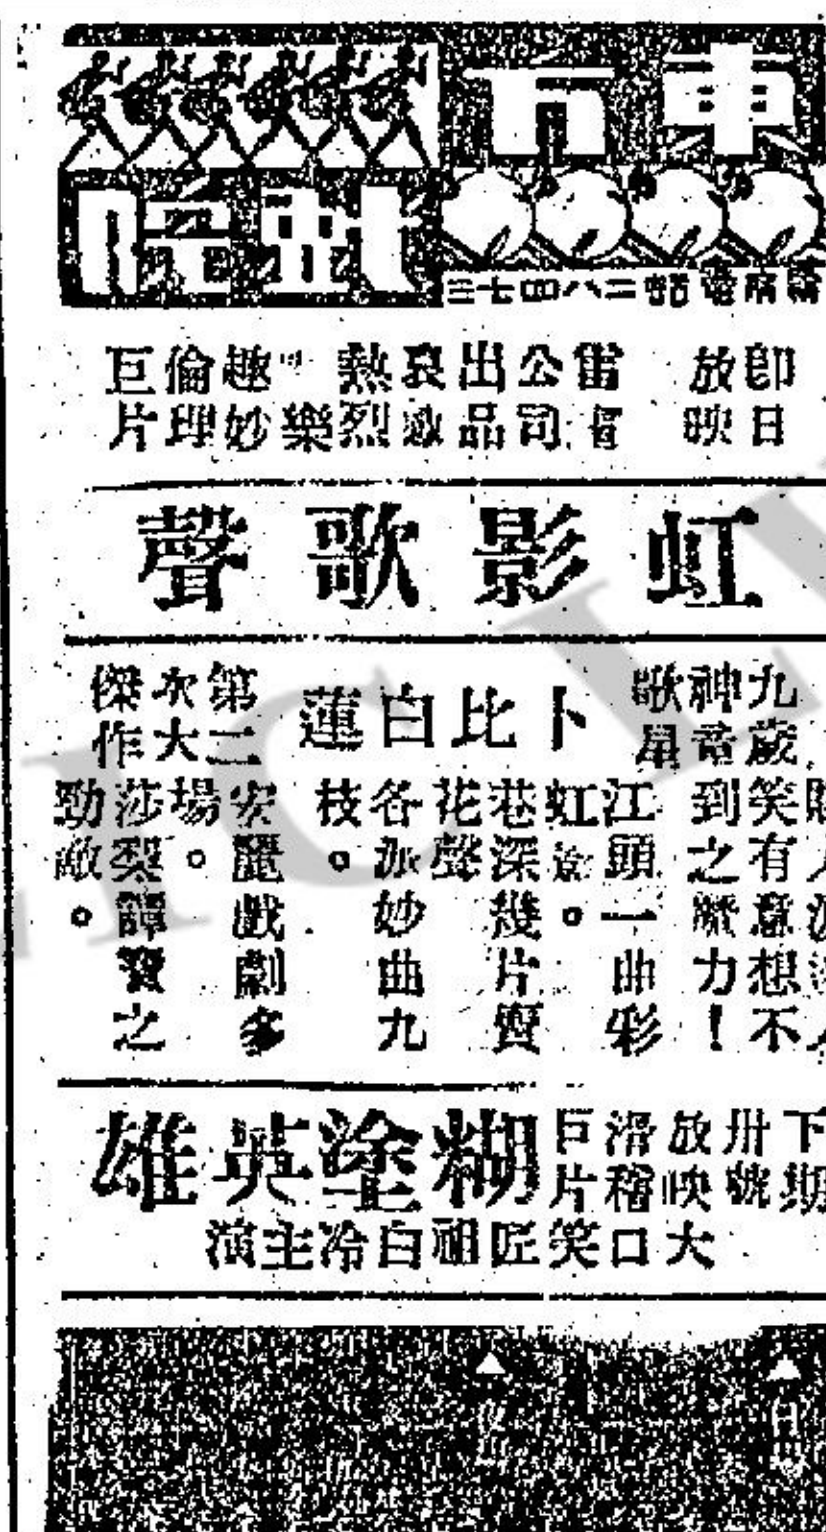 東方
戲院
電話二八四七三
即日
放映
公司
出品
哀感
熱烈
趣妙
倫理
巨片
虹影歌聲
九歲
神童
歌星
卜比白蓮
第二
次大
傑作
笑有意想不
到之魔力！
江頭一曲彩
虹
巷深幾片賣
花聲
各派妙曲九
枝。
安麗戲劇多
場。
莎梨譚寶之
勁敵。
下期
卅號
放映
滑稽
巨片
糊塗英雄
大口笑匠祖白冷主演
日場